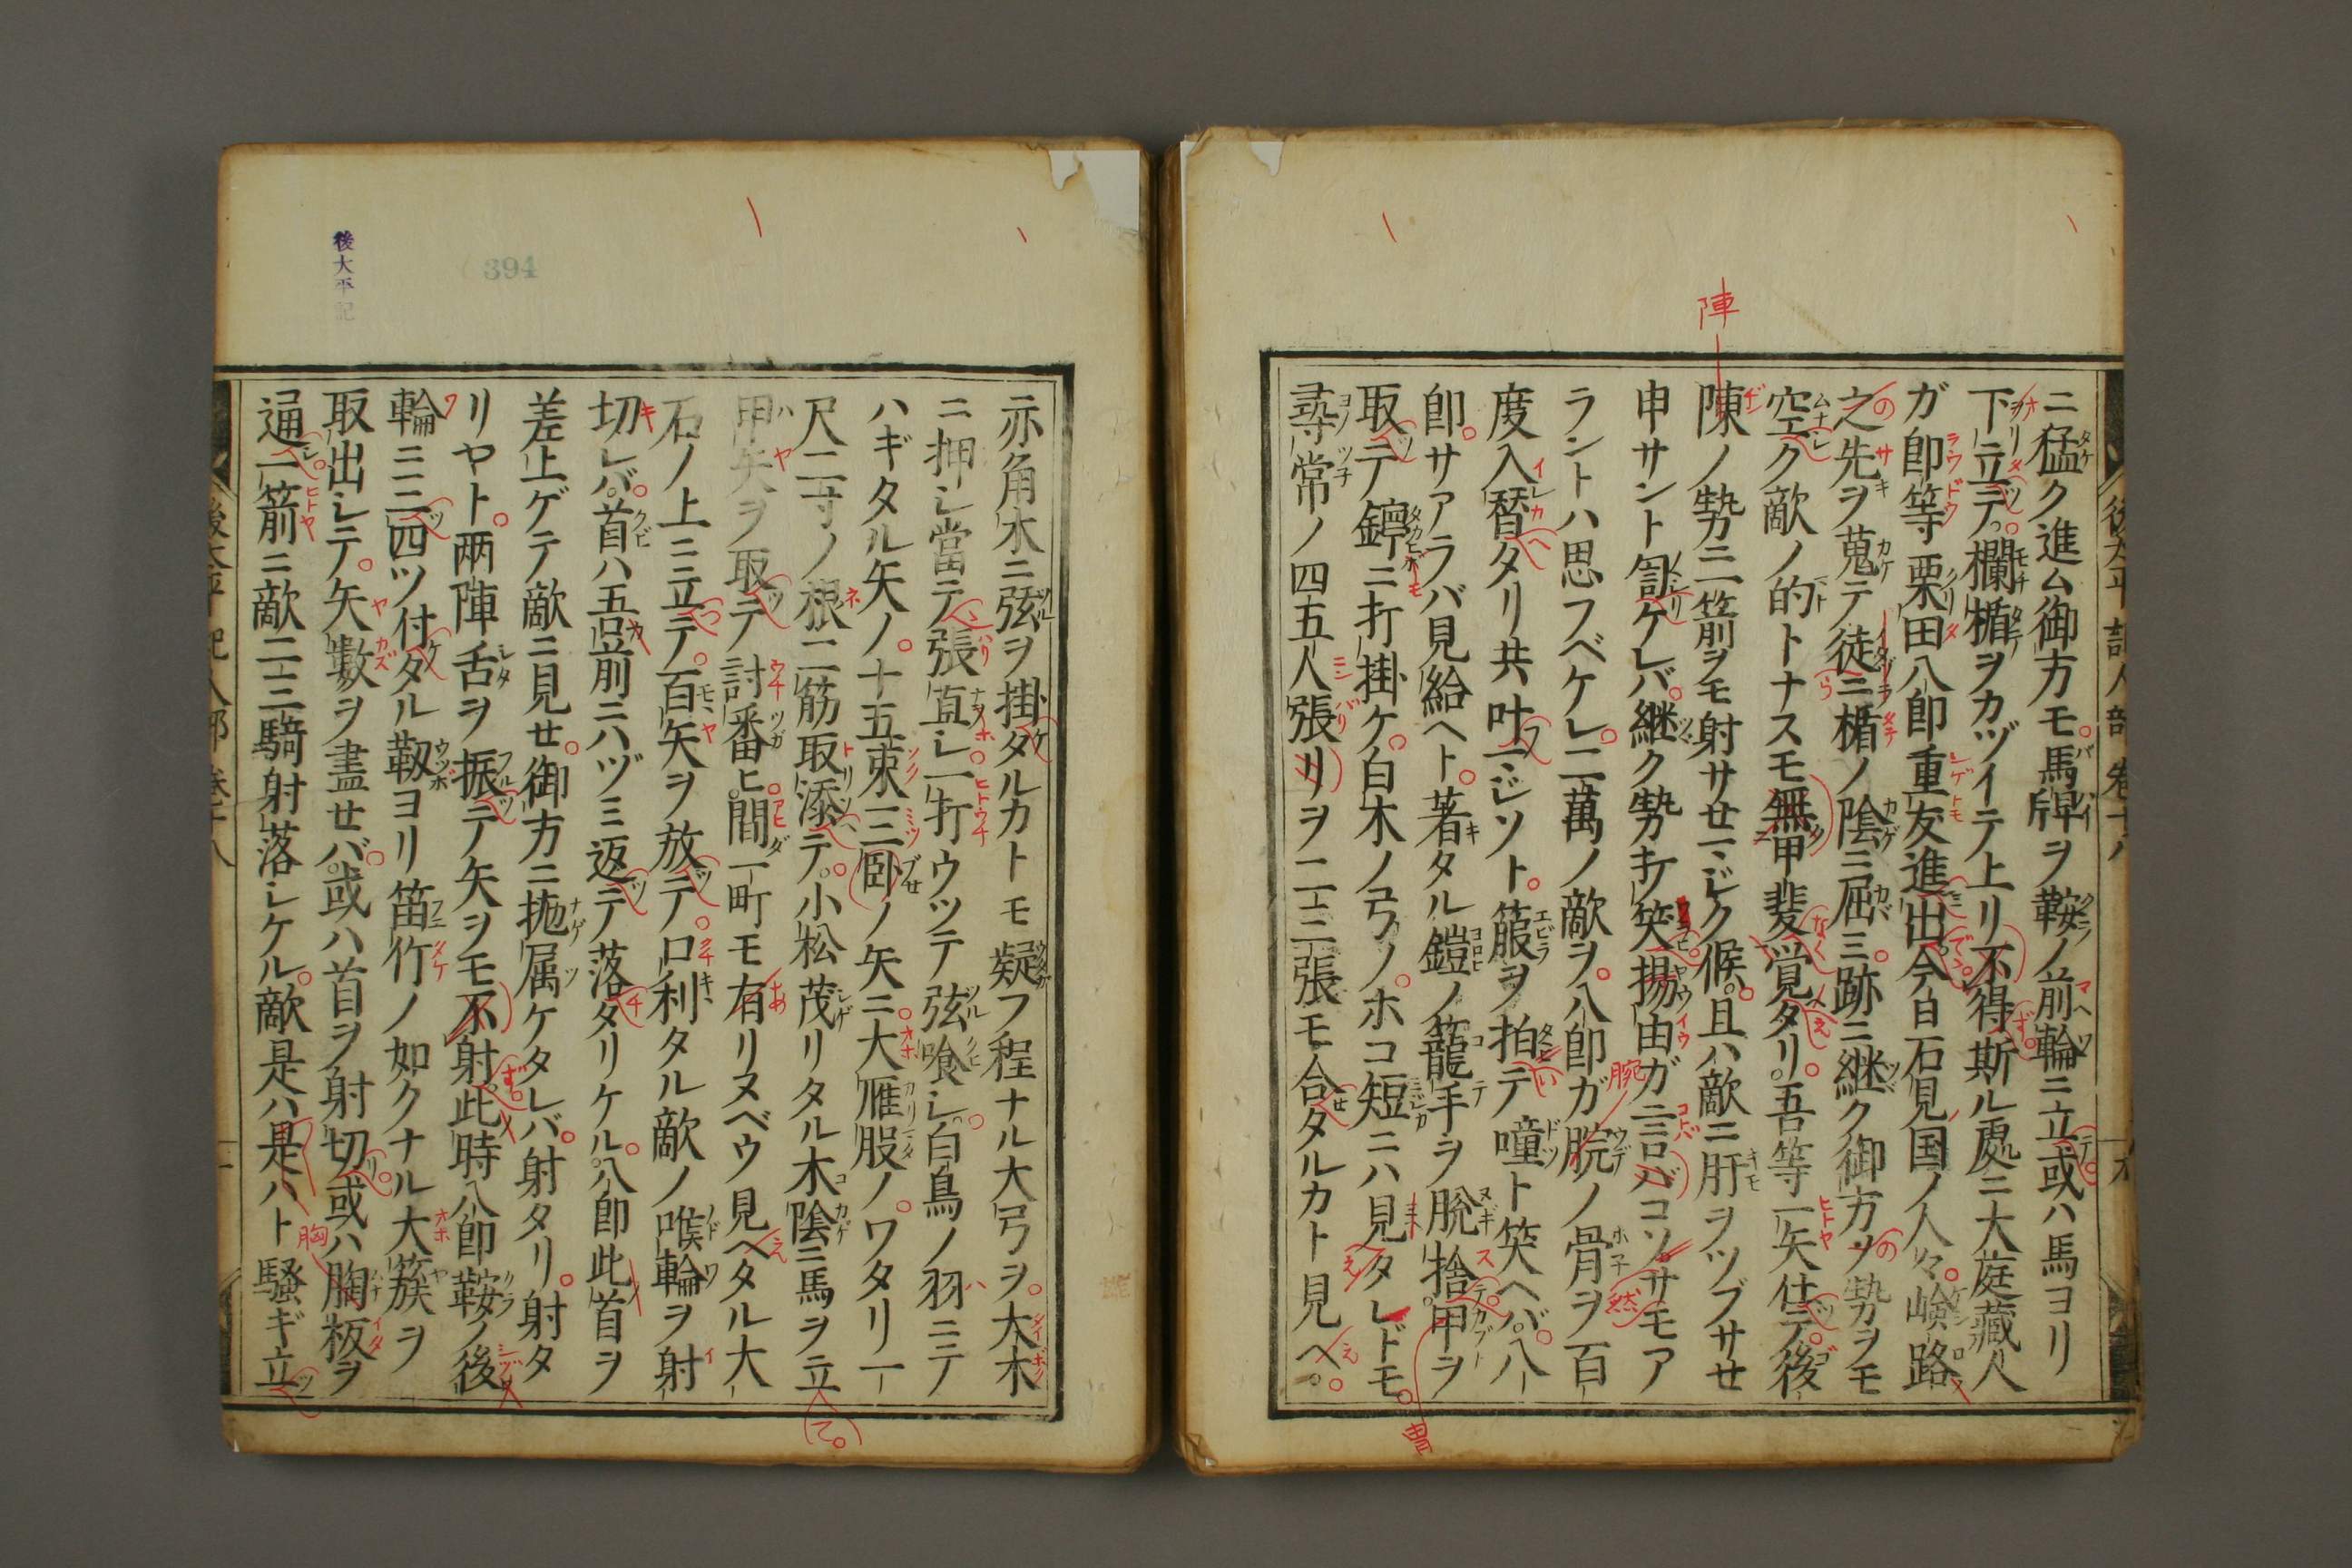 ニ猛ク進ム御方モ馬牌ヲ鞍ノ前輪ニ立或ハ馬ヨリ
下立テ欄楯ヲカヅイテ上リ不得斯ル處ニ大庭藏人
ガ郎等栗田八郎重友進出今日石見国ノ人々嶮路
之先ヲ蒐テ徒ニ楯ノ陰ニ屈ミ跡ニ継ク御方ノ勢ヲモ
空ク敵ノ的トナスモ無甲斐覚タリ吾等一矢仕テ後
陳ノ勢ニ一箭ヲモ射サセマジク候且ハ敵ニ肝ヲツブサセ
申サント訇ケレバ継ク勢打笑揚由ガ言バコソサモア
ラントハ思フベケレ二萬ノ敵ヲ八郎ガ腕ノ骨ヲ百
度入替タリ共叶マジソト箙ヲ拍テ噇ト笑ヘバ八
郎サアラバ見給ヘト著タル鎧ノ籠手ヲ脱捨甲ヲ
取テ鐴ニ打掛ケ白木ノ弓ノホコ短ニハ見タレドモ
尋常ノ四五人張リヲ二三張モ合タルカト見ヘ
陣
腕
然
冑
後太平記人部 巻十八
六
亦角木ニ弦ヲ掛タルカトモ疑フ程ナル大弓ヲ大木
ニ押シ當テ張直シ一打ウツテ弦喰シ白鳥ノ羽ニテ
ハギタル矢ノ十五束三臥ノ矢ニ大雁股ノワタリ一
尺二寸ノ根二筋取添テ小松茂リタル木陰ニ馬ヲ立
甲矢ヲ取テ討番ヒ間一町モ有リヌベウ見ヘタル大
石ノ上ニ立テ百矢ヲ放テ口利タル敵ノ喉輪ヲ射
切レバ首ハ五六間前ニハヅミ返テ落タリケル八郎此首ヲ
差上ゲテ敵ニ見セ御方ニ抛属ケタレバ射タリ射タ
リヤト両陣舌ヲ振テ矢ヲモ不射此時八郎鞍ノ後
輪ニ三四ツ付タル靱ヨリ笛竹ノ如クナル大簇ヲ
取出シテ矢數ヲ盡セバ或ハ首ヲ射切或ハ胸板ヲ
逼一箭ニ敵二三騎射落シケル敵是ハ是ハト騒ギ立
胸
後太平記
394
後太平記人部 巻十八